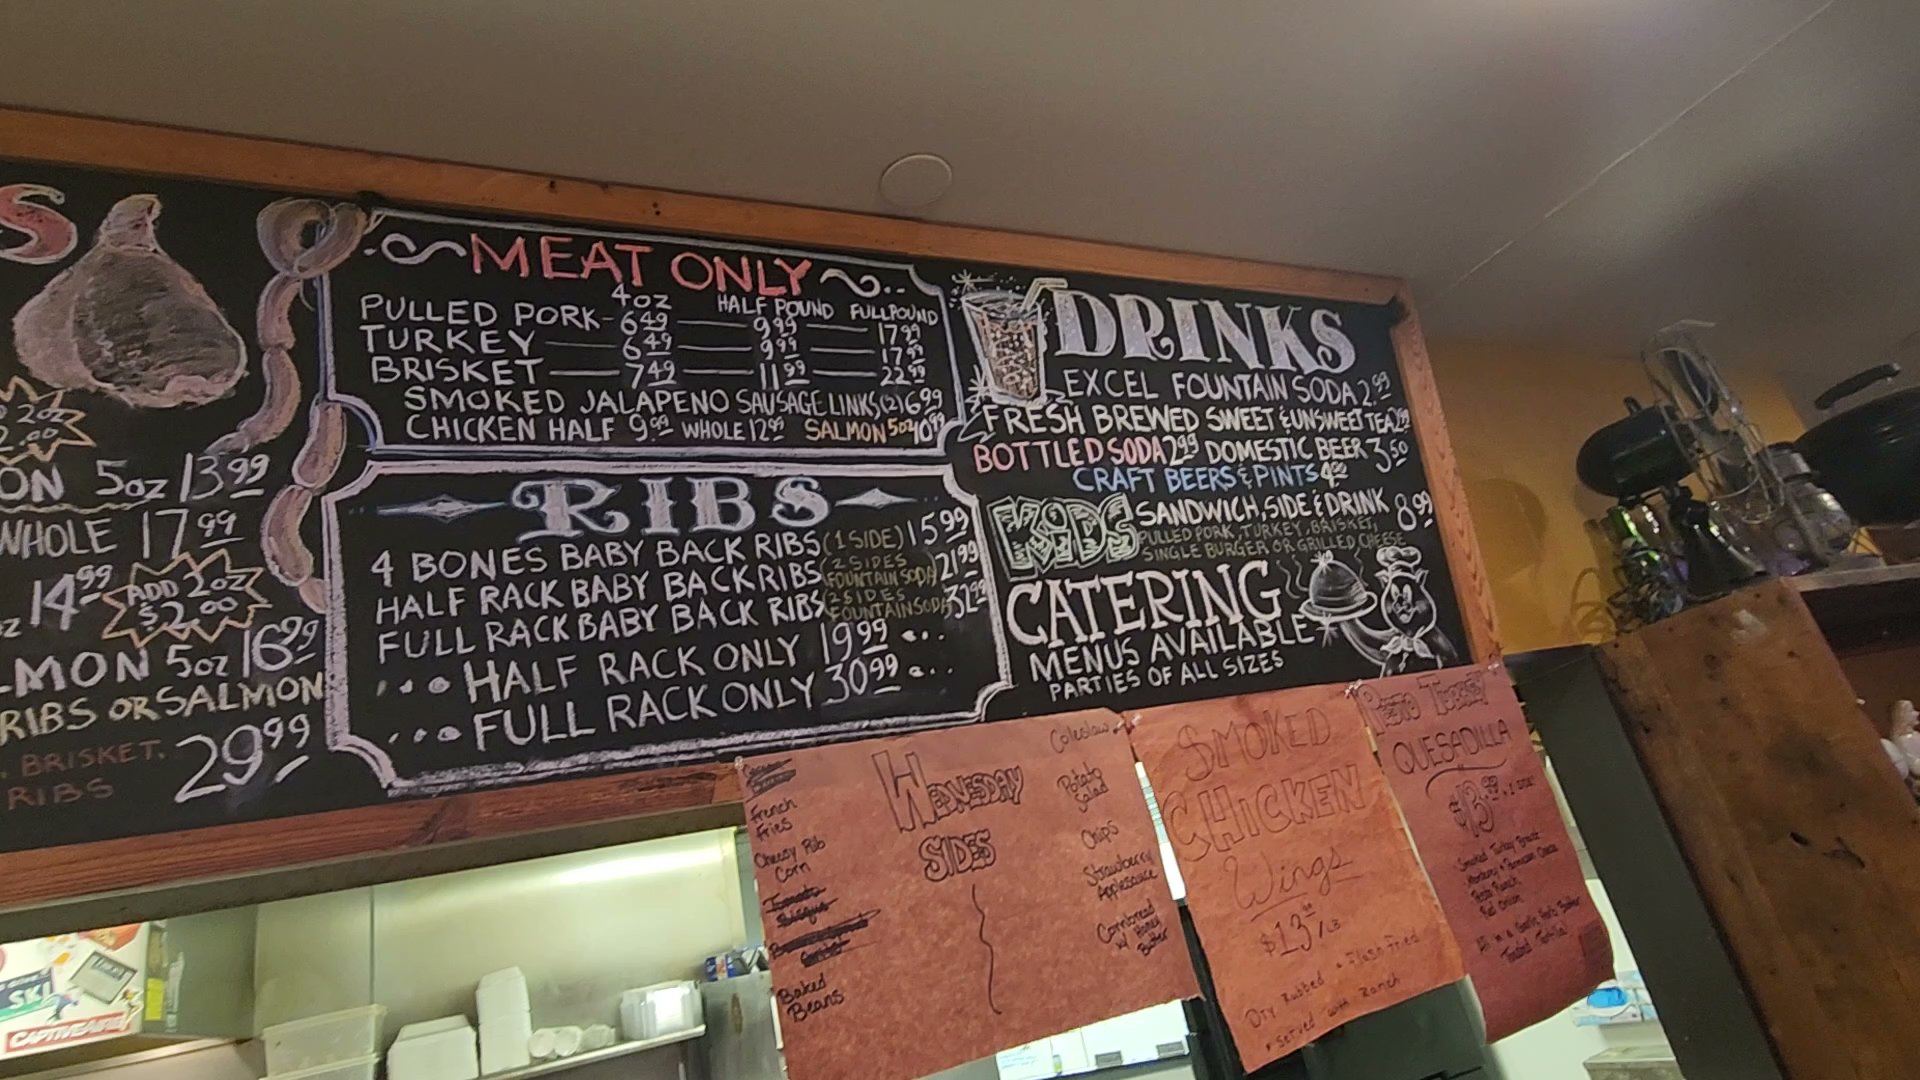 S
2oz
2.00
ON 5oz 13.99
WHOLE 17.99
14.99
ADD 2oz
$2.00
LMON 5oz 16.99
RIBS OR SALMON
BRISKET,
RIBS
29.99
MEAT ONLY
4oz HALF POUND FULL POUND
PULLED PORK 6.49 9.99 17.99
TURKEY 6.49 9.99 17.99
BRISKET 7.49 11.99 22.99
SMOKED JALAPENO SAUSAGE LINKS (2) 6.99
CHICKEN HALF 9.99 WHOLE 12.99 SALMON 5oz 10.99
RIBS
4 BONES BABY BACK RIBS (1 SIDE) 15.99
HALF RACK BABY BACK RIBS (2 SIDES FOUNTAIN SODA) 21.99
FULL RACK BABY BACK RIBS (2 SIDES FOUNTAIN SODA) 32.99
HALF RACK ONLY 19.99
FULL RACK ONLY 30.99
DRINKS
EXCEL FOUNTAIN SODA 2.99
FRESH BREWED SWEET & UNSWEET TEA 2.99
BOTTLED SODA 2.99 DOMESTIC BEER 3.50
CRAFT BEERS & PINTS
KIDS
SANDWICH, SIDE & DRINK 8.99
PULLED PORK, TURKEY, BRISKET,
SINGLE BURGER OR GRILLED CHEESE
CATERING
MENUS AVAILABLE
PARTIES OF ALL SIZES
WEDNESDAY
SIDES
French
Fries
Cheesy Rib
Corn
Baked
Beans
Coleslaw
Potato
Salad
Chips
Strawberry
Applesauce
Cornbread
w/ Honey
Butter
SMOKED
CHICKEN
Wings
$13.99/LB
Dry Rubbed & Flash Fried
Served with Ranch
PESTO TURKEY
QUESADILLA
$13.99
Smoked Turkey Breast
Pesto Ranch
Red Onion
All in a Garlic Herb Butter
Toasted Tortilla!
SKI
CAPTIVEAIRE